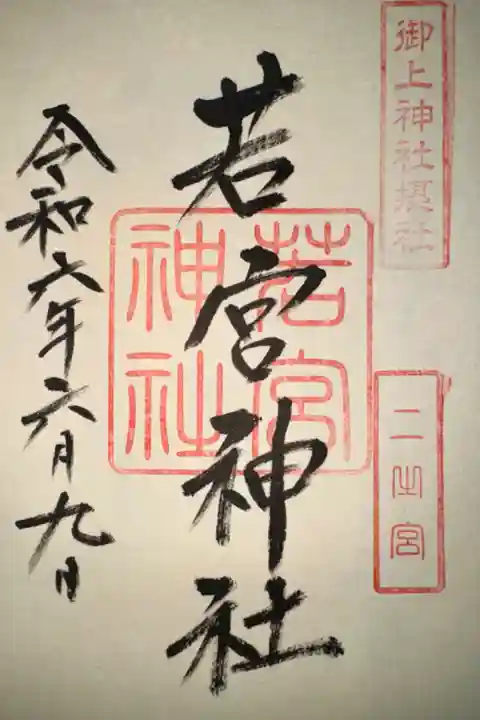 御上神社摂社
二之宮
若宮神社
若宮神社
令和六年六月九日